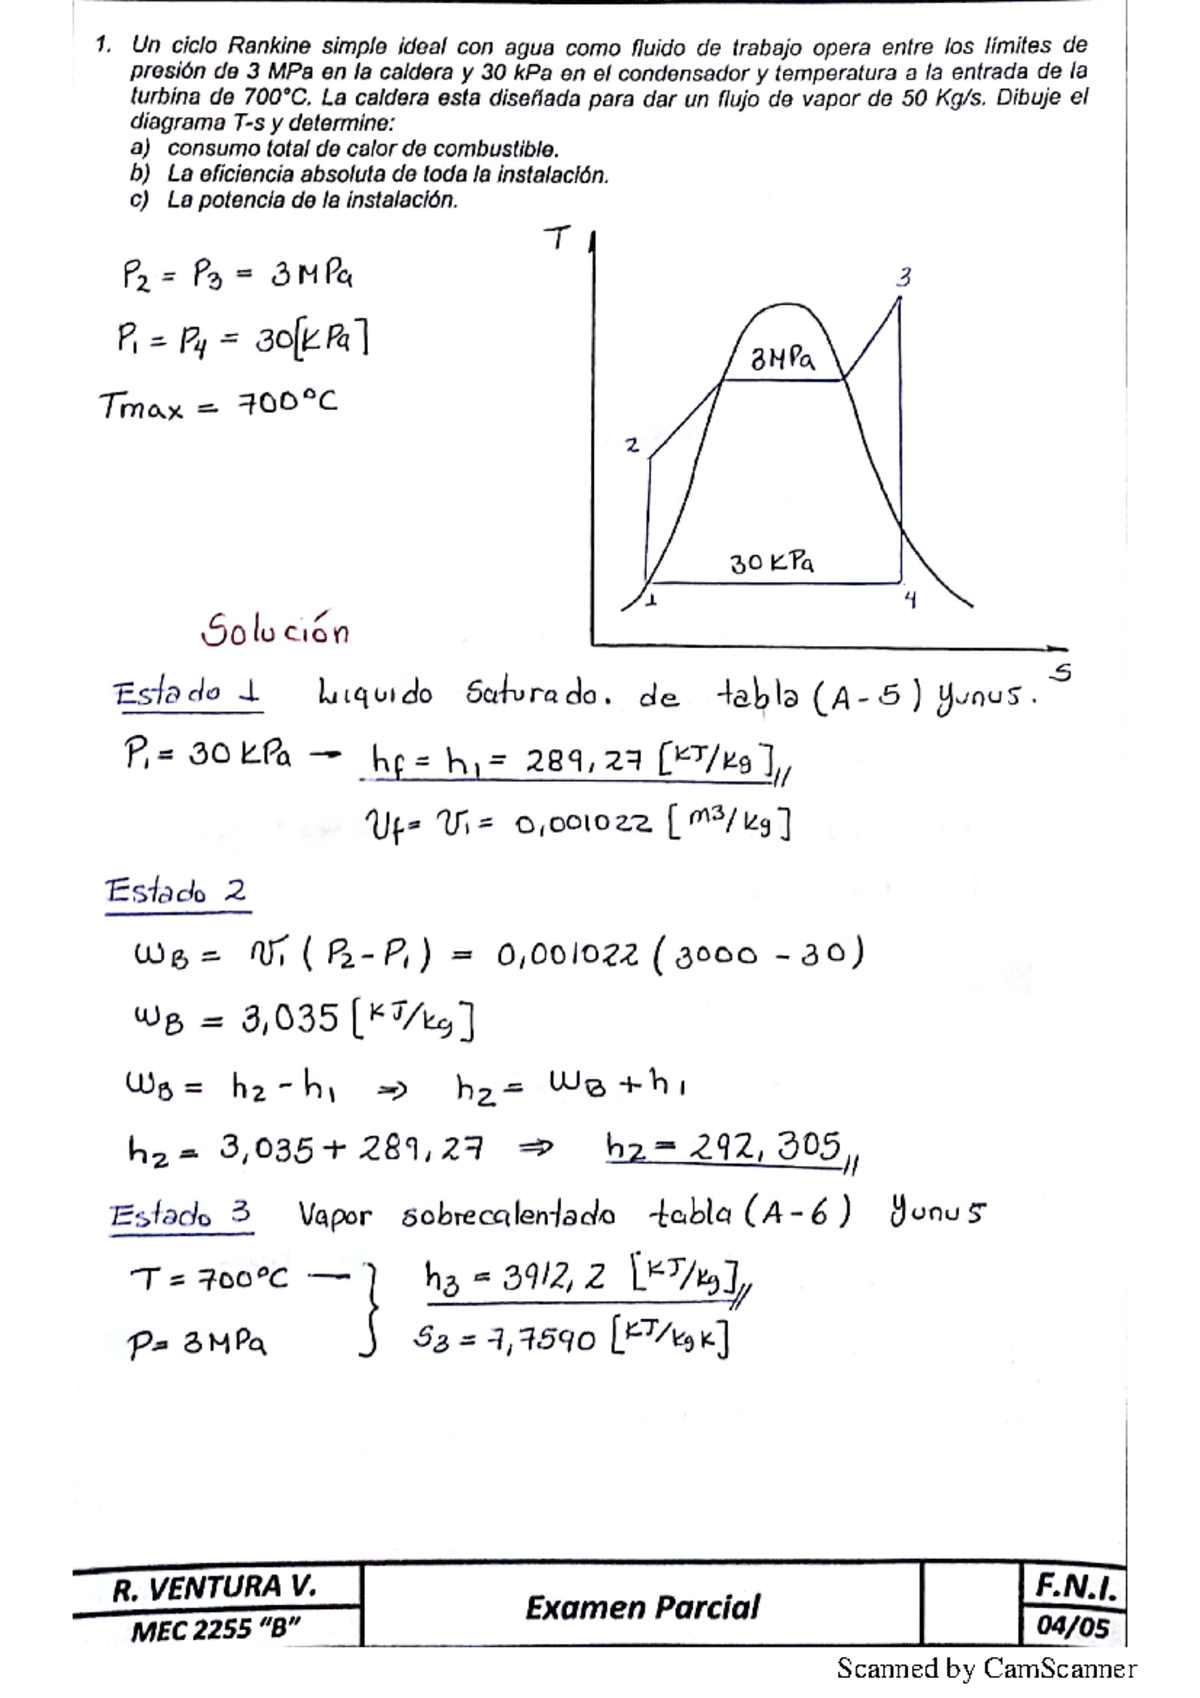 1. Un ciclo Rankine simple ideal con agua como fluido de trabajo opera entre los límites de
presión de 3 MPa en la caldera y 30 kPa en el condensador y temperatura a la entrada de la
turbina de 700°C. La caldera esta diseñada para dar un flujo de vapor de 50 Kg/s. Dibuje el
diagrama T-s y determine:
a) consumo total de calor de combustible.
b) La eficiencia absoluta de toda la instalación.
c) La potencia de la instalación.
T
P2 = P3 = 3MPa
3
P1 = P4 = 30[KPa]
3MPa
Tmax = 700°C
2
30 KPa
1
4
S
Solución
Estado 1 Liquido Saturado. de tabla (A-5) Yunus.
P1 = 30 KPa → hf = h1 = 289,27 [KJ/Kg]//
Vf = V1 = 0,001022 [m3/Kg]
Estado 2
WB = V1 (P2-P1) = 0,001022 (3000 - 30)
WB = 3,035 [KJ/Kg]
WB = h2 - h1 ⇒ h2 = WB + h1
h2 = 3,035 + 289,27 ⇒ h2 = 292,305//
Estado 3 Vapor sobrecalentado tabla (A-6) Yunus
T = 700°C — } h3 = 3912,2 [KJ/Kg]//
P= 3MPa S3 = 7,7590 [KJ/Kg K]
R. VENTURA V.
MEC 2255 "B"
Examen Parcial
F.N.I.
04/05
Scanned by CamScanner